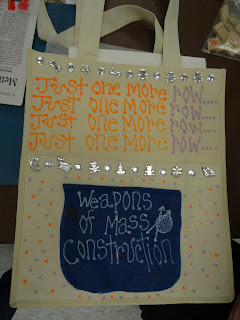 Just one more row....
Just one more row....
Just one more row....
Just one more row....
Weapons
of Mass
Construction